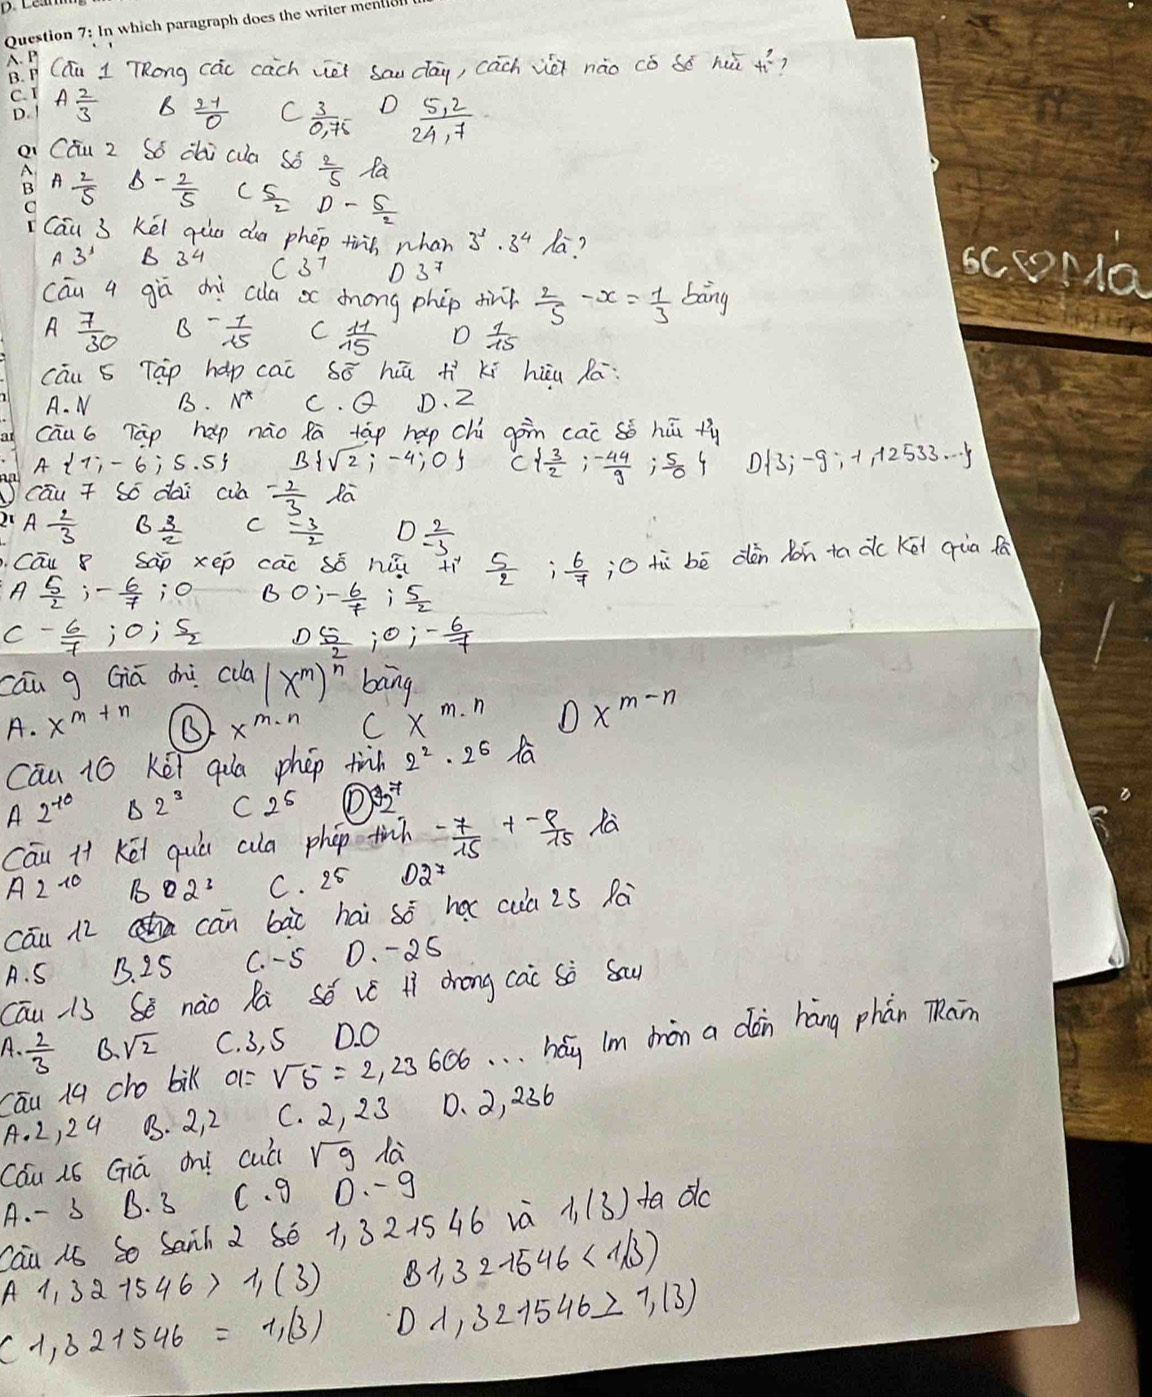 Question 7: In which paragraph does the writer mention
Câu 1 Trong các cách viết sau đây, cách viết nào có số hữu tỉ?
A 2/3 B 21/0 C 3/0,75 D 5,2/24,7
Câu 2 Số đối của số 2/5 là
A 2/5 B -2/5 C 5/2 D -5/2
Câu 3 Kết quả của phép tính nhân 3³.3⁴ là?
A 3¹ B 34 C 3¹ D 3⁷
câu 4 giá trị của x trong phép tính 2/5 - x = 1/3 bằng
A 7/30 B -1/15 C 11/15 D 1/15
câu 5 Tập hợp các số hữu tỉ kí hiệu là:
A. N B. N* C. Q D. Z
câu 6 Tập hợp nào là tập hợp chỉ gồm các số hữu tỷ
A {1; -6; 5.5} B {√2; -4; 0} C {3/2; -44/9; 5/0} D {3; -9; 1,12533...}
câu 7 số đối của -2/3 là
A 2/3 B 3/2 C -3/2 D 2/-3
Câu 8 Sắp xếp các số hữu tỉ 5/2 ; 6/7 ; 0 từ bé đến lớn ta đc kết quả là
A 5/2 ; -6/7 ; 0 B 0 ; -6/7 ; 5/2
C -6/7 ; 0 ; 5/2 D 5/2 ; 0 ; -6/7
câu 9 Giá trị của (x^m)^n bằng
A. x^m+n B. x^m.n C x^m.n D x^m-n
Câu 10 Kết quả phép tính 2².2⁵ là
A 2⁻¹⁰ B 2³ C 2⁵ D 2⁷
câu 11 Kết quả của phép tính -7/15 + -8/15 là
A 2⁻¹⁰ B 2³ C. 25 D 2⁷
câu 12 căn bậc hai số học của 25 là
A. 5 B. 25 C. -5 D. -25
câu 13 Số nào là số vô tỉ trong các số sau
A. 2/3 B. √2 C. 3,5 D. 0
câu 14 cho bik a = √5 = 2,23606... hãy lm tròn a đến hàng phần Trăm
A. 2,24 B. 2,2 C. 2,23 D. 2,236
Câu 15 Giá trị của √9 là
A. -3 B. 3 C. 9 D. -9
câu 15 So sánh 2 số 1,321546 và 1,(3) ta đc
A 1,321546 > 1,(3) B 1,321546 < 1,(3)
C 1,321546 = 1,(3) D 1,321546 ≥ 1,(3)